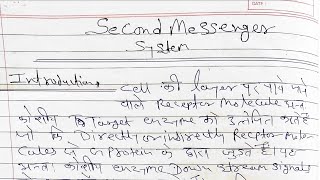 DATE:
Second Messenger
System
Introduction Cell की layer पर पाये जाने
वाले Receptor Molecule अन्तः
कोशीय Target enzyme को उत्तेजित करते हैं
जो कि Directly or indirectly Receptor
G Protein के द्वारा जुड़ते हैं यह
अन्तः कोशीय enzyme Down Stream Signals